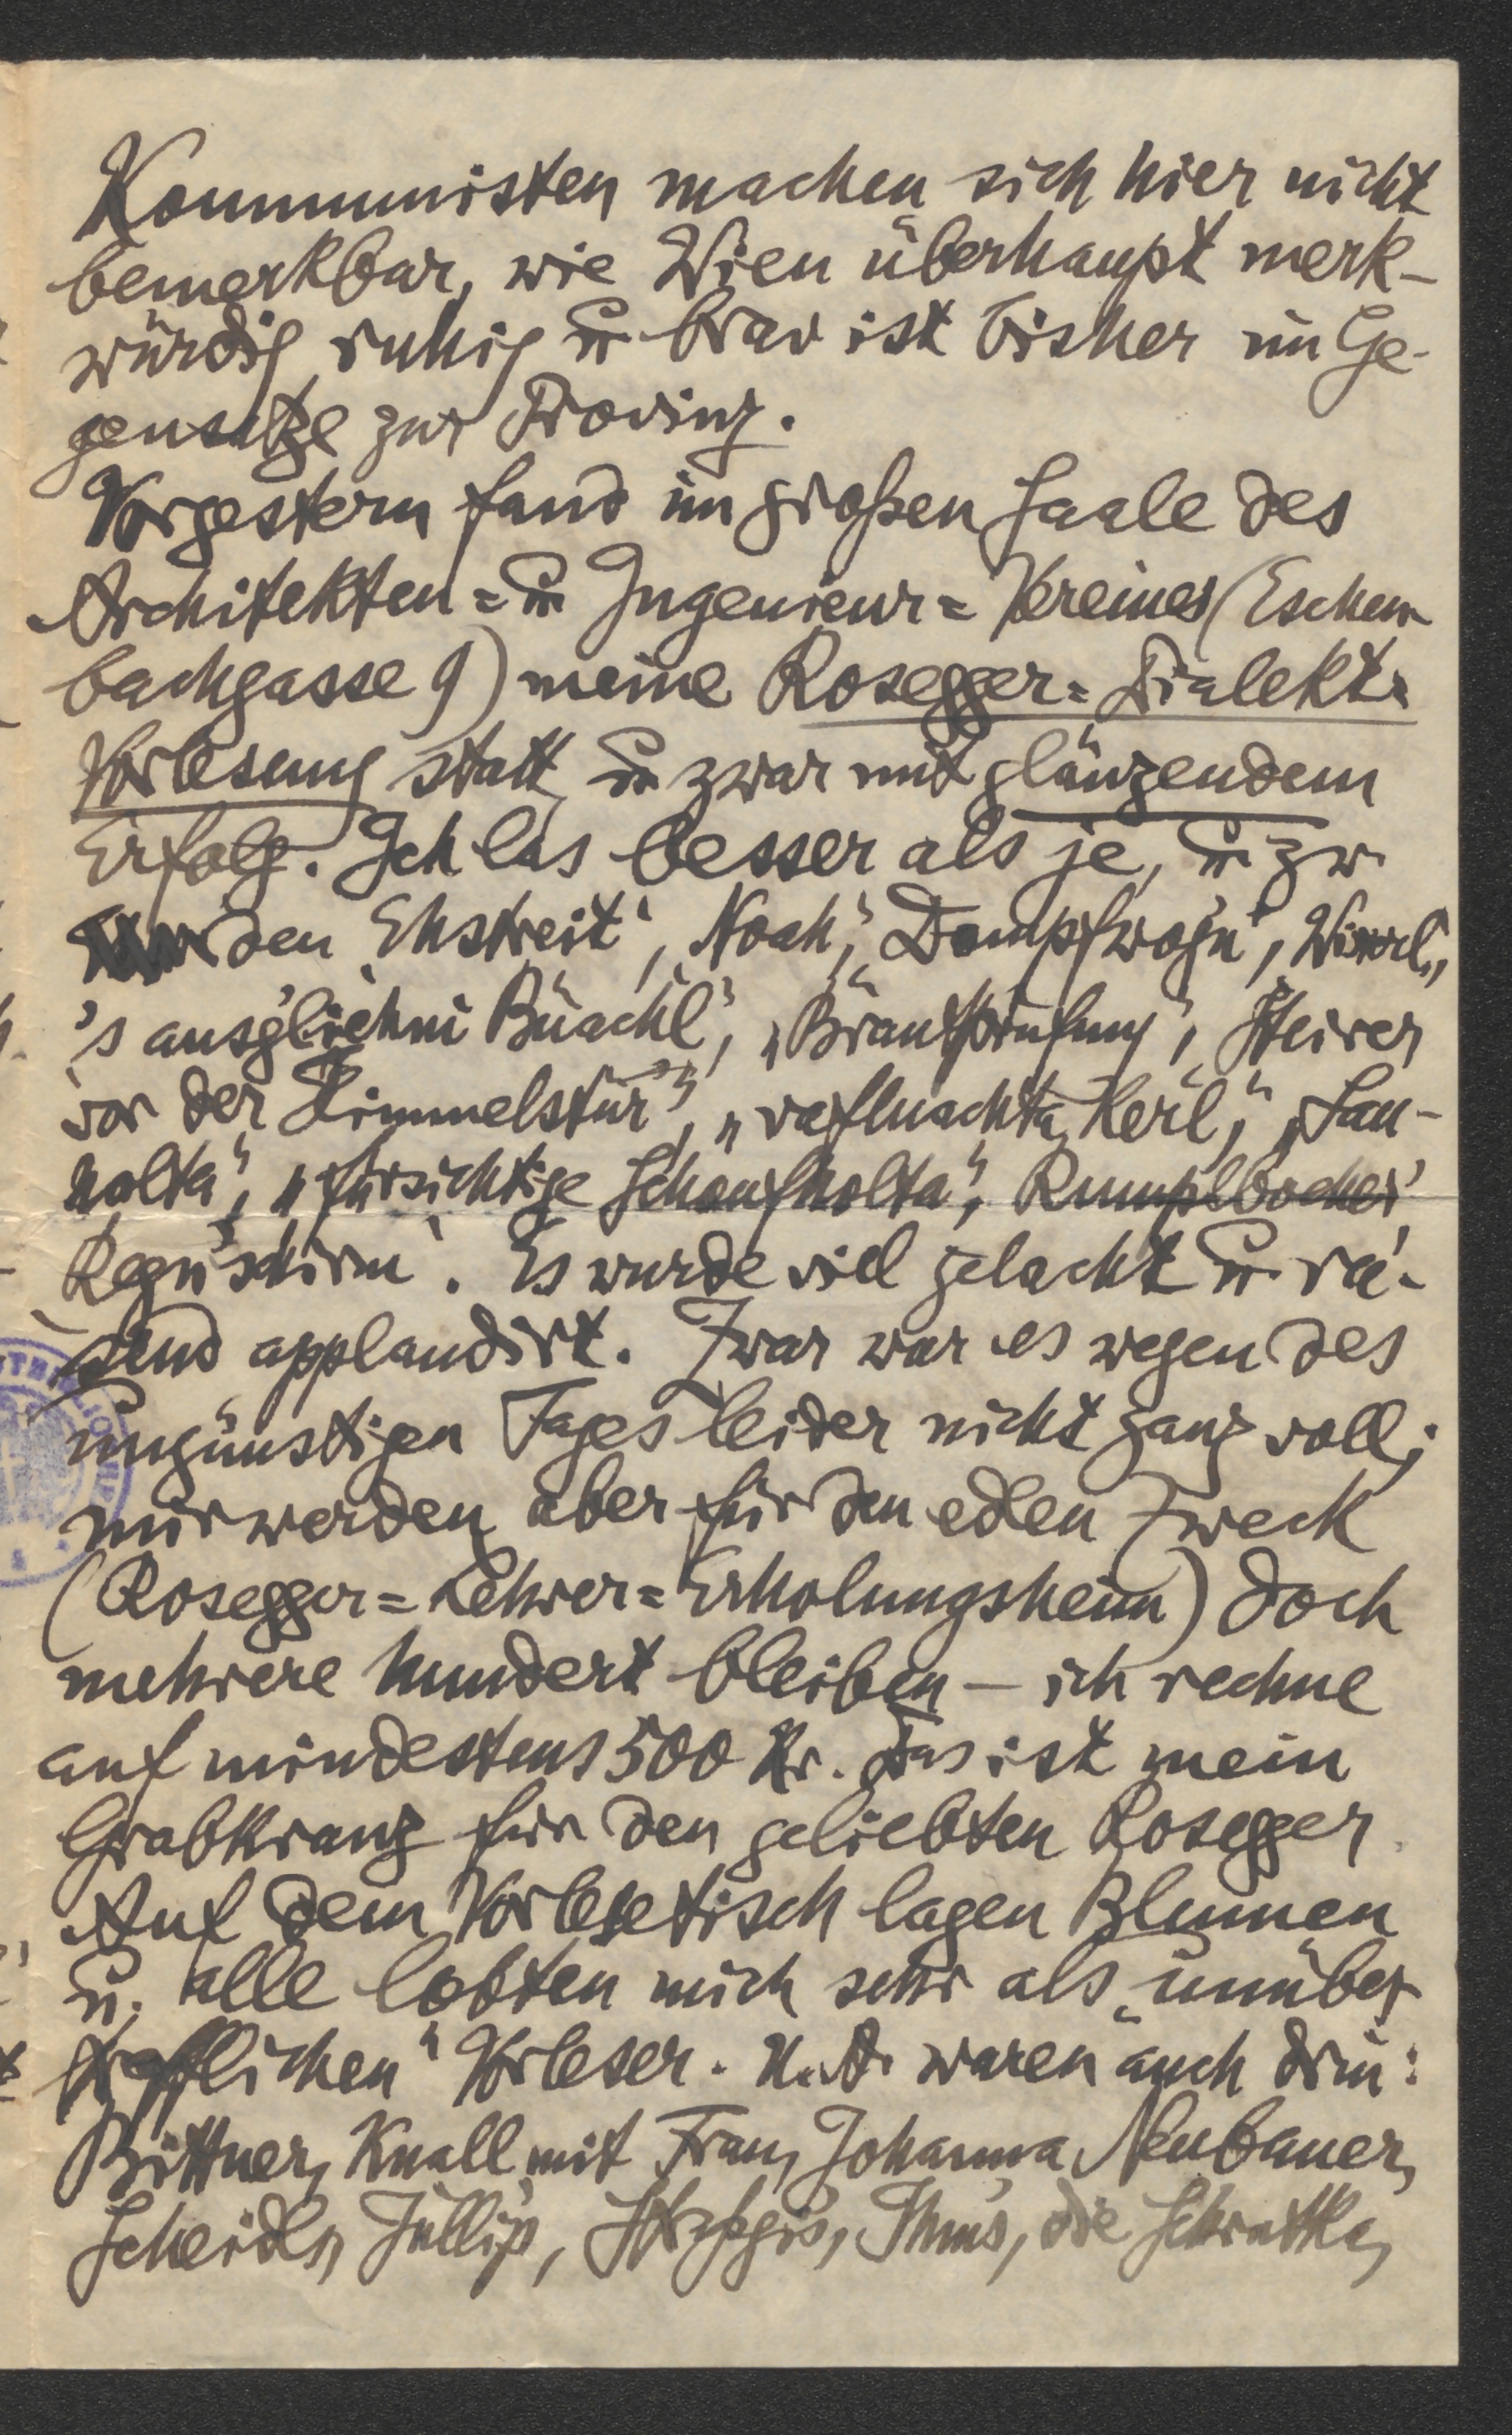 Kommunisten machen sich hier nicht
bemerkbar, wie Wien überhaupt merk-
würdig ruhig u. brav ist bisher im Ge-
gensatze zur Provinz.
Vorgestern fand im großen Saale des
Architekten= u. Ingenieur=Vereines (Eschen-
bachgasse 9) meine Rosegger=Dialekt=
Vorlesung statt, u. zwar mit glänzendem
Erfolg. Ich las besser als je, u. zw.
den Ehstreit", Noah", Dampfwogn",
's ausgliehni Büachl", „Brautprüfung", Steirer
vor der Himmelstür", Kerl", „Sau-
holta", „fürsichtige Schoufholta",
Regnschirm". Es wurde viel gelacht u. ra-
send applaudirt. Zwar war es wegen des
ungünstigen Tages leider nicht ganz voll;
mir werden aber für den edlen Zweck
(Rosegger=Lehrer=Erholungsheim) doch
mehrere hundert bleiben – ich rechne
auf mindestens 500 Kr. Das ist mein
Grabkranz für den geliebten Rosegger.
Auf dem Vorlesetisch lagen Blumen
u. alle lobten mich sehr als „unüber-
trefflichen" Vorleser. U. A. waren auch drin:
Bittner, Knall mit Frau, Johanna Neubauer,